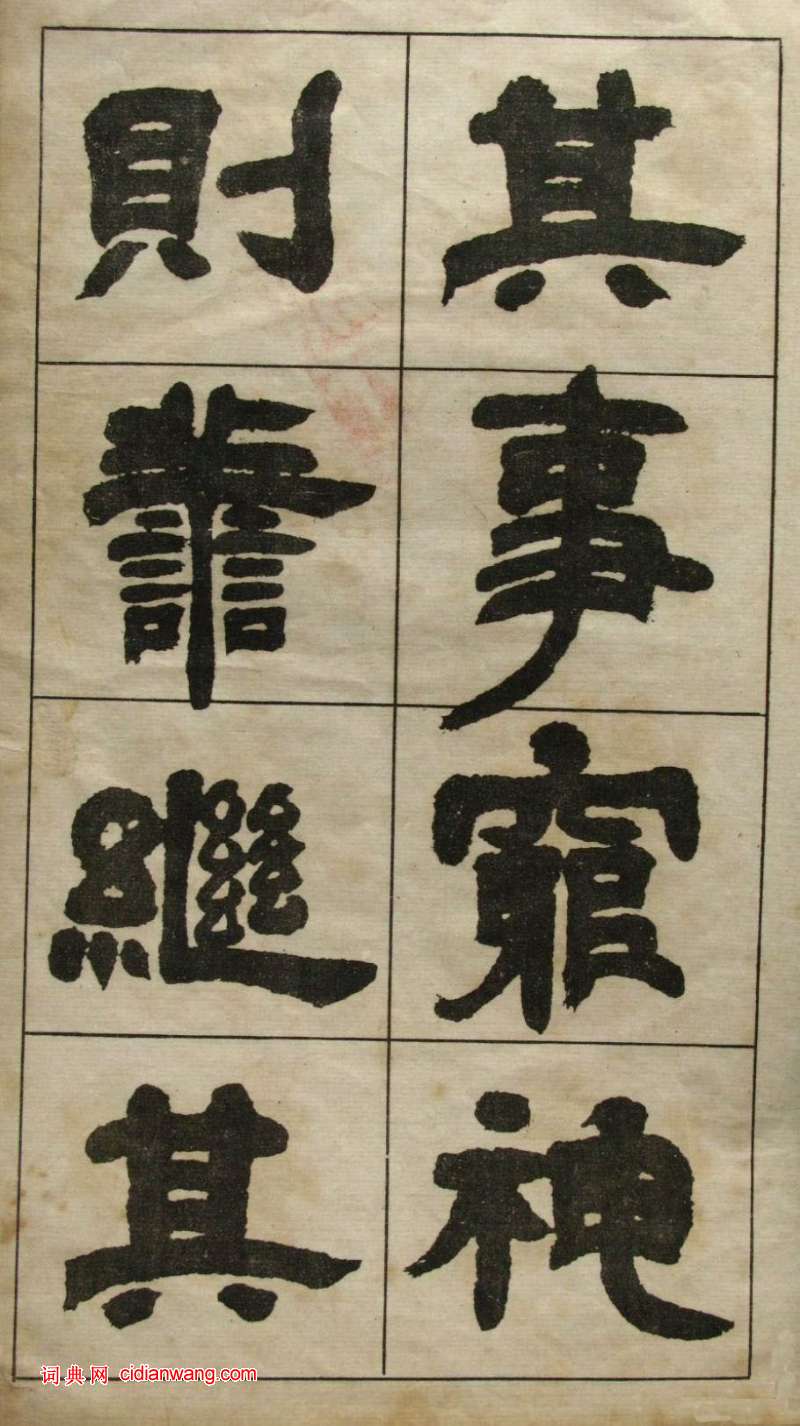 其事竆神
則譱繼其
词典网 cidianwang.com